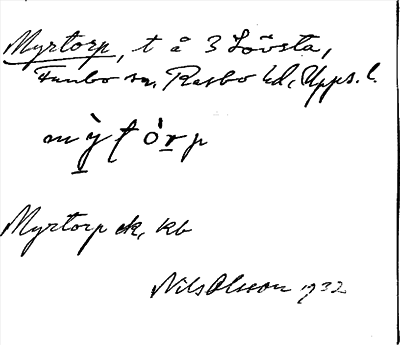 Myrtorp, t å 3 Lövsta,
Funbo sn, Rasbo hd, Upps. l.
mỳtórp
Myrtorp ek, kb
Nils Olsson 1932